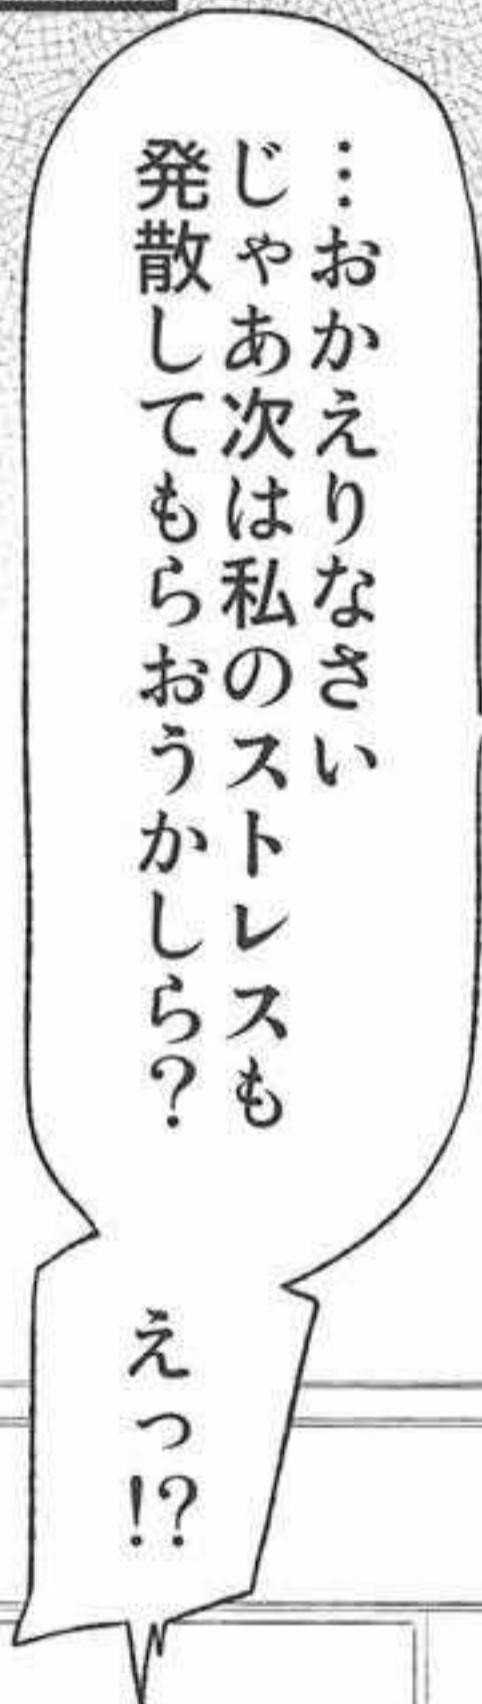 …おかえりなさい
じゃあ次は私のストレスも
発散してもらおうかしら？
えっ!?